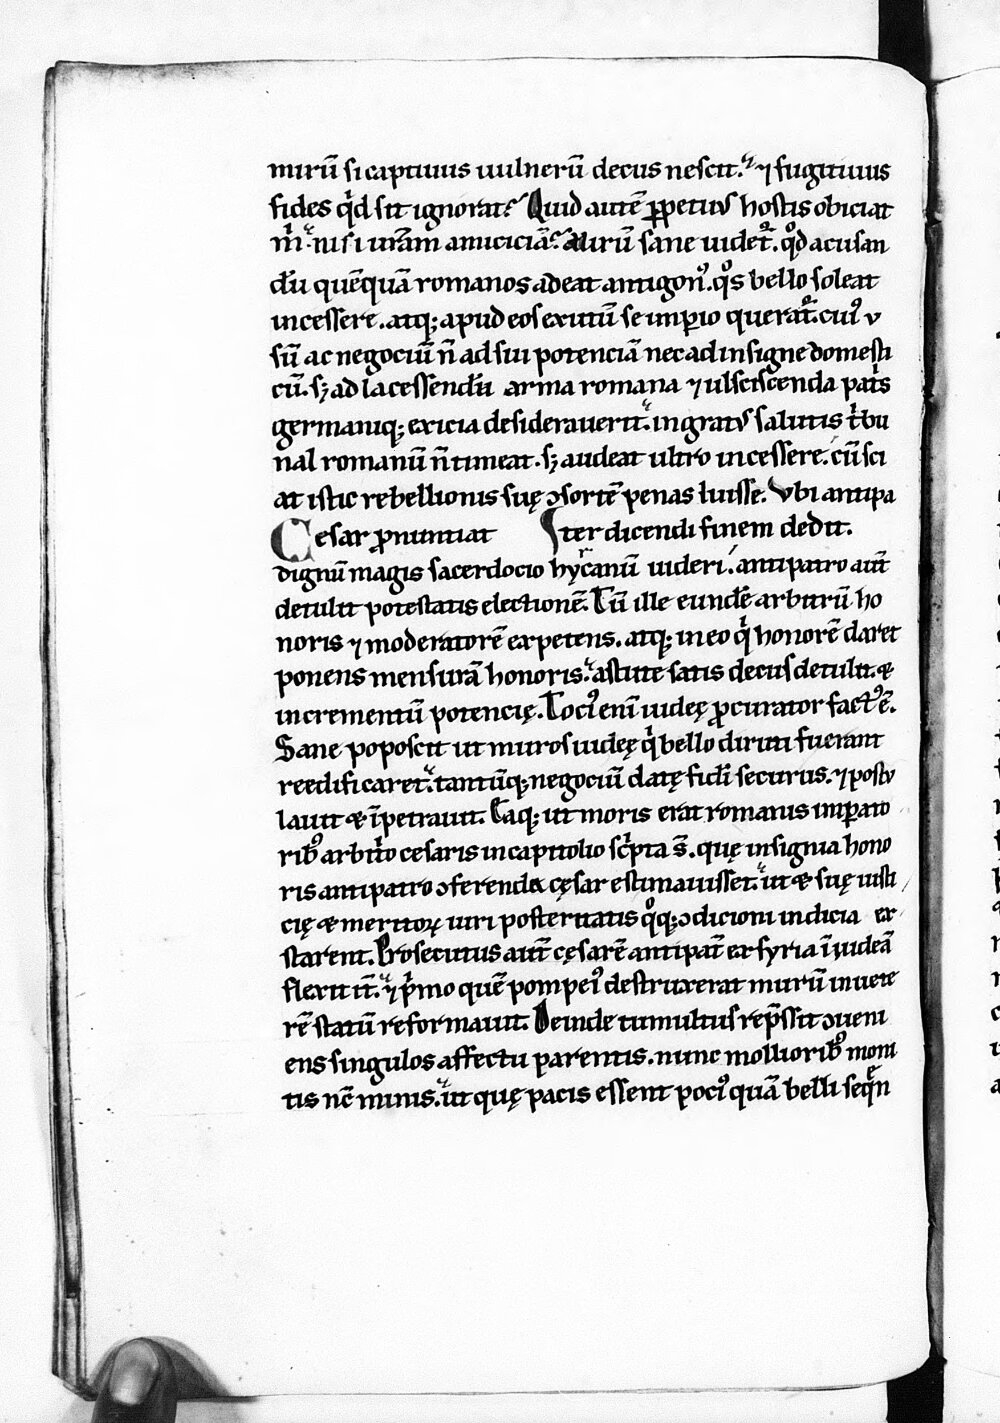 mirū si captiuus uulnerū decus nescit. ⁊ fugitiuus
fides qͥd sit ignorat. Quid autē ꝑpetuꝰ hostis obiciat
m̍ nisi uram̄ amiciciā. Mirū sane uidet᷑. qͦd acusan
dū quēquā romanos adeat antigonꝰ. qͦs bello soleat
incessere. atq; apud eos exutū se imꝑio querat᷑. cuiꝰ u
sū ac negociū n̄ ad sui potenciā nec ad insigne domesti
cū. sꝫ ad lacessendū arma romana ⁊ ulsciscenda pat͛s
germaniq; exicia desiderauerit. ingratꝰ salutis t͛bu
nal romanū n̄ timeat. sꝫ audeat ultro incessere. cū sci
at istic rebellionis suę ↄsortē penas luisse. Vbi antipa
Cesar ꝓnuntiat ter dicendi finem dedit.
dignū magis sacerdocio hyrcanū uideri. antipatro aut̄
detulit potestatis electionē. Tū ille eundē arbitrū ho
noris ⁊ moderatorē expetens. atq; in eo qͥ honorē daret
ponens mensurā honoris. astute satis decus detulit. &
incrementū potencię. Tociꝰ enī iudeę ꝓcurator factꝰ ē.
Sane poposcit ut muros iudeę qͥ bello diruti fuerant
reedificaret. tantūq; negociū datę fidi securus. ⁊ postu
lauit & īpetrauit. Eaq; ut moris erat romanis imꝑato
ribꝰ arbitͦ cesaris in capitolio sc͛pta s̄. quę insignia hono
ris antipatro ↄferenda cęsar estimauisset. ut & suę iusti
cię & meritoꝝ uiri posteritatis qͦq; ↄdicioni indicia ex
starent. Prosecutus aut̄ cęsarē antipat̄ ex syria ī iudeā
flexit it̄. ⁊ p͛mo quē pompeiꝰ destruxerat murū in uete
rē statū reformauit. Deinde tumultus rep̄ssit ↄueni
ens singulos affectu parentis. nunc mollioribꝰ moni
tis nc̄ minis. ut quę pacis essent pociꝰ quā belli seqͤn